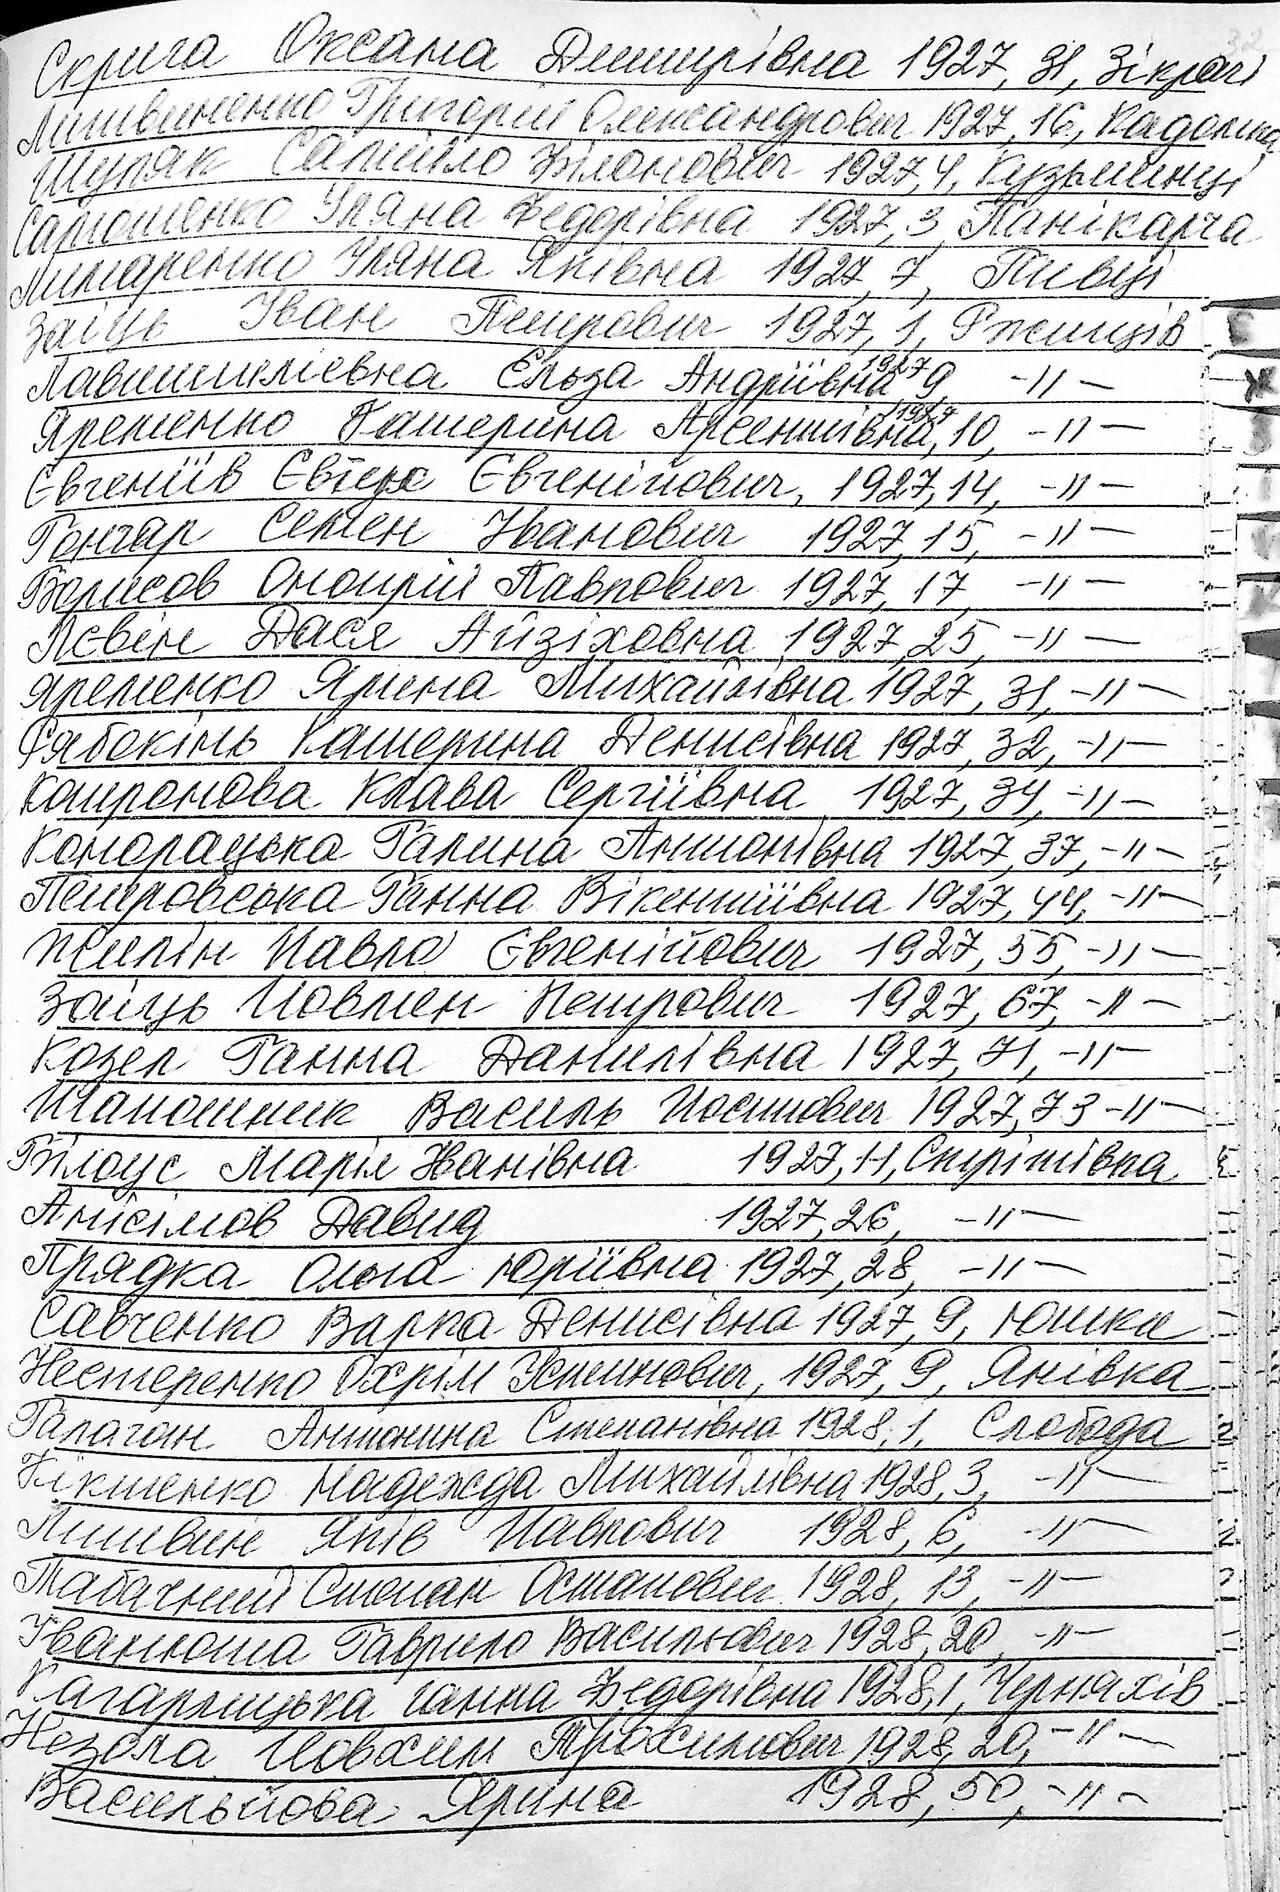 32
Скрига Оксана Дмитрівна 1927, 31, Зікрачі
Литвиненко Григорій Олександрович 1927, 16, Кадомка
Шупяк Самійло Філонович 1927, 4, Кузьминці
Самошенко Уляна Федорівна 1927, 3, Панікарча
Лимаренко Уляна Яківна 1927, 7, Пивці
Заїць Іван Петрович 1927, 1, Ржищів
Ельза Андріївна 1927 9, -"-
Яременко Катерина Арсентіївна, 1927 10, -"-
Євгеніїв Євгенійович, 1927, 14, -"-
Гончар Семен Іванович 1927, 15, -"-
Борисов Онопрій Павлович 1927, 17, -"-
Лєвін Дася Айзіховна 1927, 25, -"-
Яременко Ярина Михайлівна 1927, 31, -"-
Рябокінь Катерина Денисівна 1927, 32, -"-
Капронова Клава Сергіївна 1927, 34, -"-
Кондрацька Галина Антонівна 1927, 37, -"-
Петровська Ганна Вікентіївна 1927, 44, -"-
Жилін Павло Євгенійович 1927, 55, -"-
Заїць Йовмен Петрович 1927, 67, -"-
Козел Ганна Данилівна 1927, 71, -"-
Шапошник Василь Йосипович 1927, 73 -"-
Білоус Марія Іванівна 1927, 11, Стрітівка
Анісімов Давид 1927, 26, -"-
Прядка Ольга Юріївна 1927, 28, -"-
Савченко Варка Денисівна 1927, 9, Юшки
Нестеренко Охрім Устинович, 1927, 9, Янівка
Галаган Антонина Степанівна 1928, 1, Слобода
Надежда Михайлівна 1928, 3, -"-
Литвин Яків Павлович 1928, 6, -"-
Табачний Степан Остапович 1928, 13, -"-
Іванюта Гаврило Васильович 1928, 20, -"-
Кагарлицька Ганна Федорівна 1928, 1, Черняхів
Незола Йовхим Трохимович 1928, 20, -"-
Васильйова Ярина 1928, 50, -"-